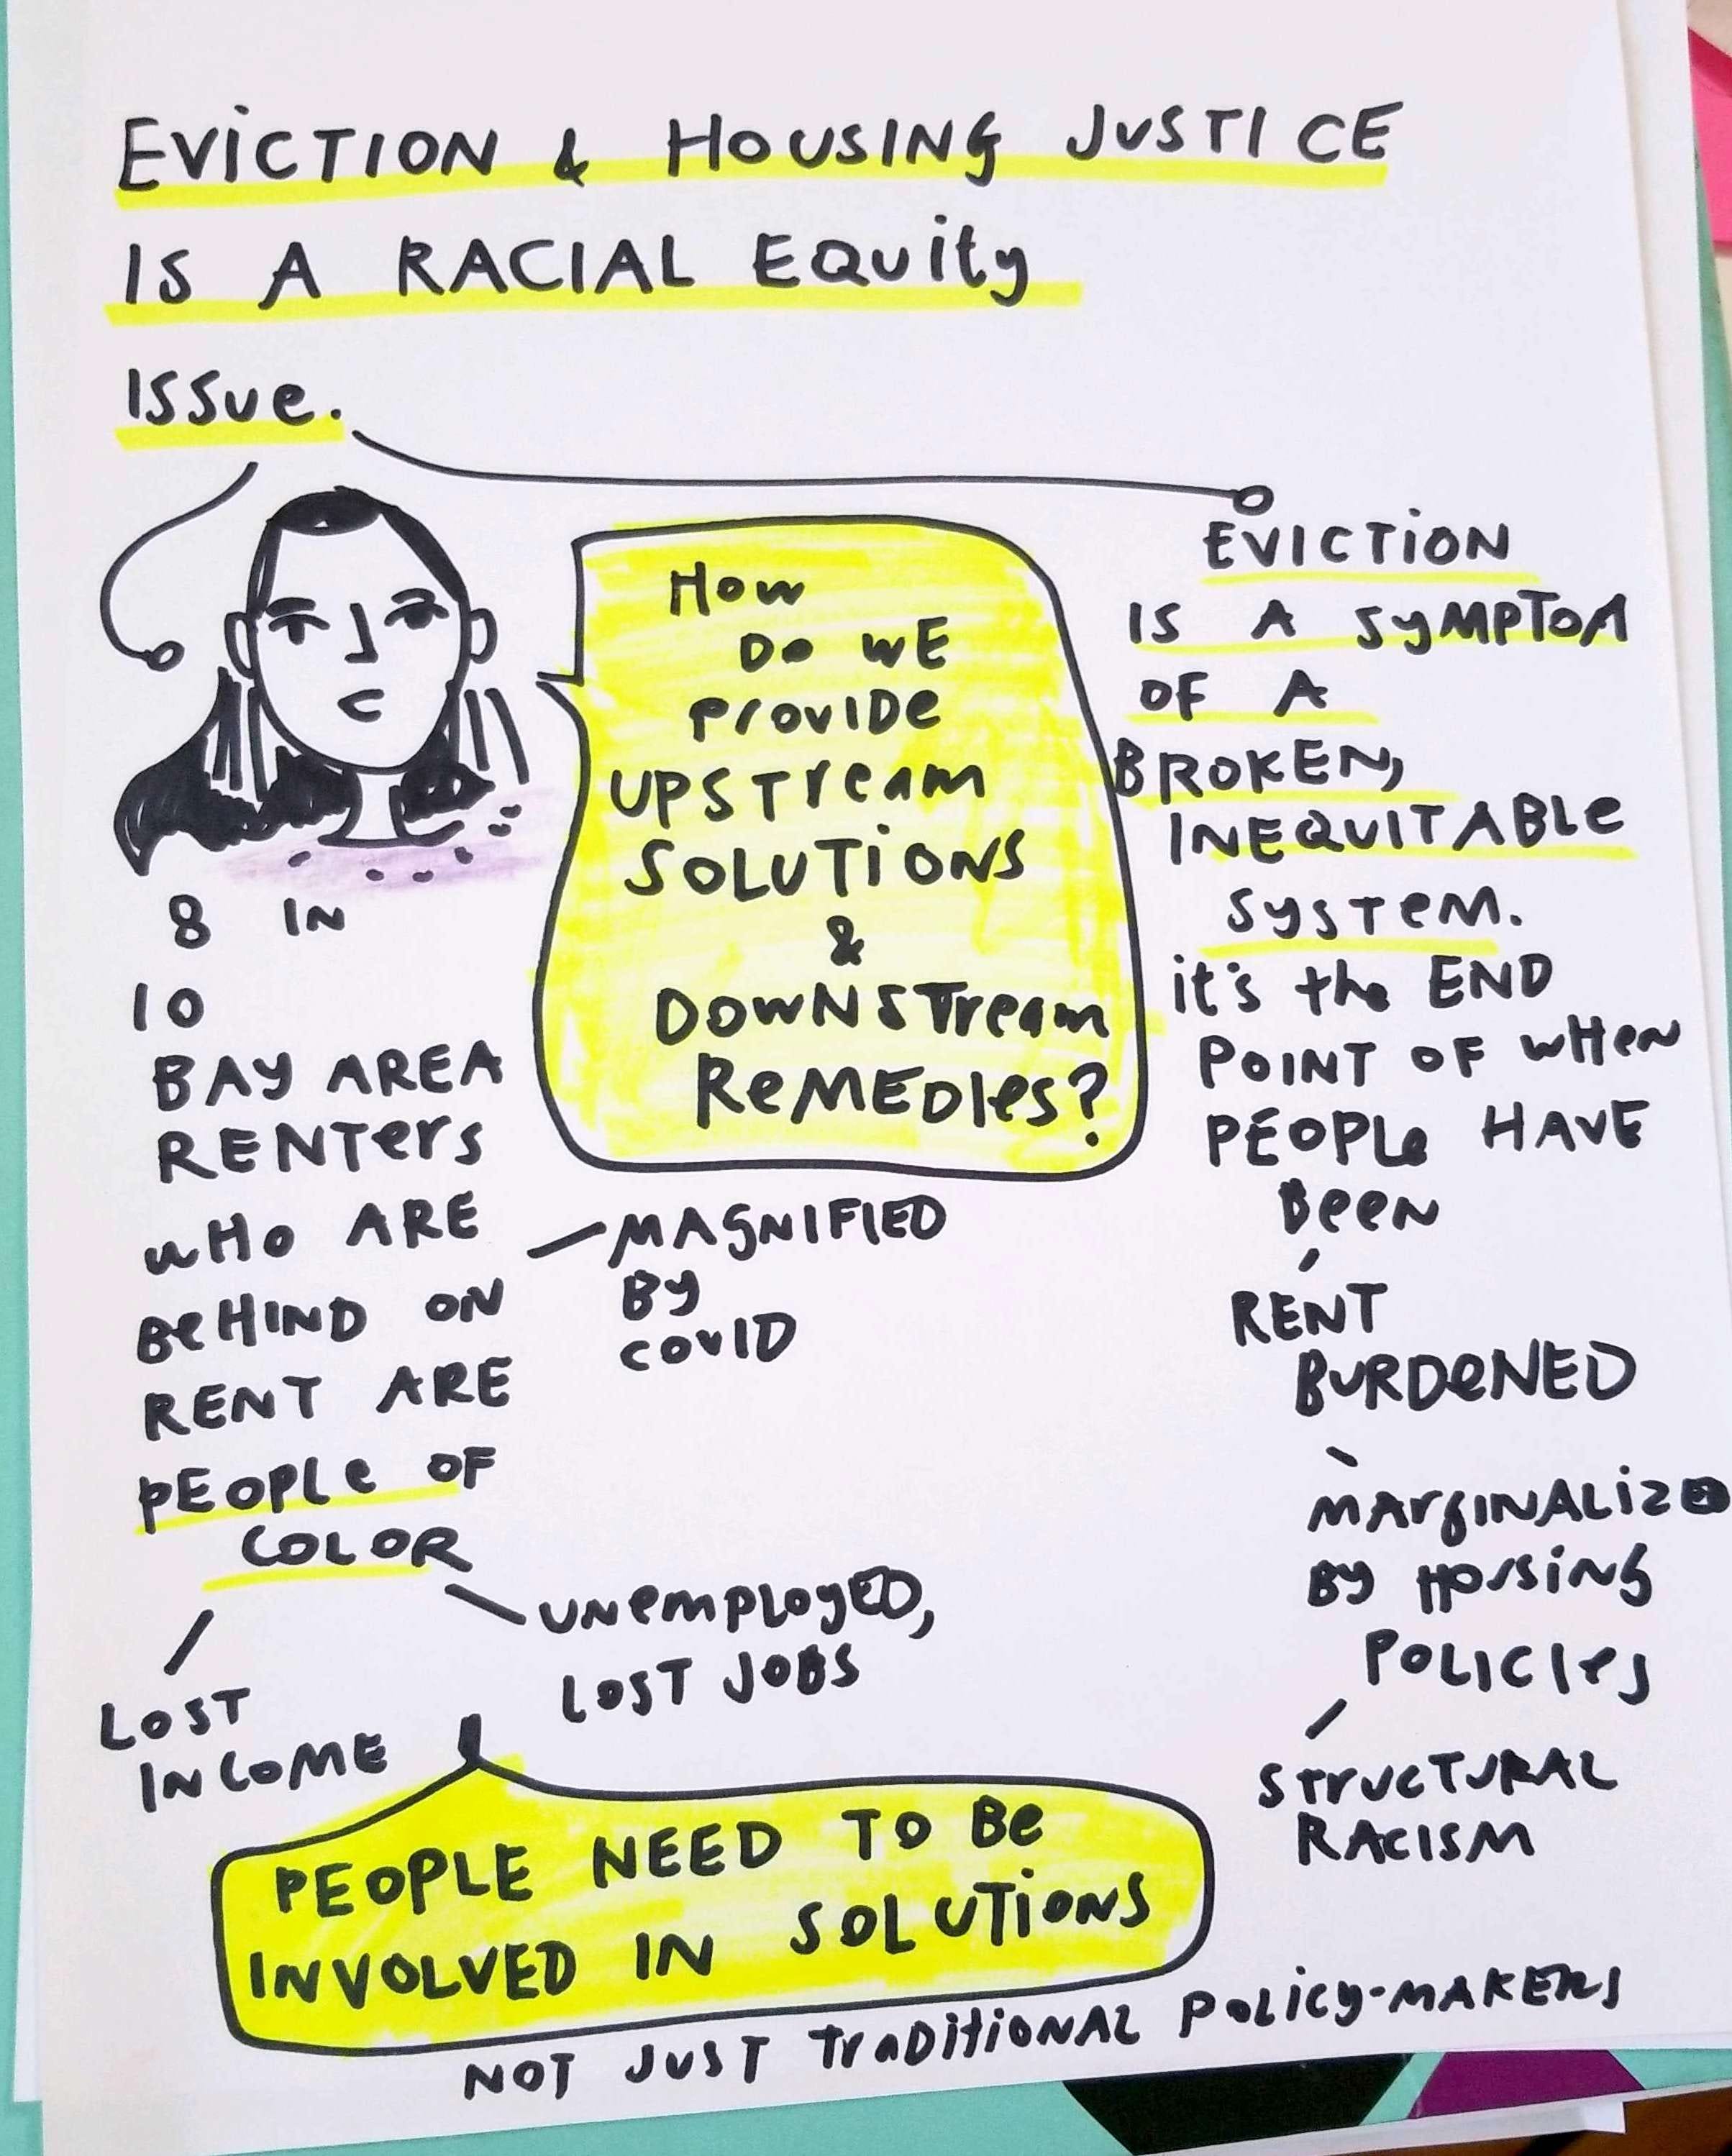 EVICTION & HOUSING JUSTICE
IS A RACIAL EQUity
ISSue.
8 IN
10
BAY AREA
RENTers
WHO ARE
BeHIND ON
RENT ARE
PEOPLe OF
COLOR
LOST
INCOME
UNemPLoyED,
LOST JOBS
MAGNIFIED
By
COVID
How
Do WE
ProVIDe
UPSTream
SOLUTiONS
&
DOWNSTream
ReMEDIes?
EVICTiON
IS A SyMPTOM
OF A
BROKEN,
INEQUITABLe
SySTeM.
it's the END
POINT OF WHeN
PEOPLe HAVE
BeeN
RENT
BURDeNED
MArgINALizED
By HOusiNg
POLICIes
STrUCTURAL
RACISM
PEOPLE NEED TO Be
INVOLVED IN SOLUTiONS
NOT JUST TraDitiONAL POLicy-MAKERS